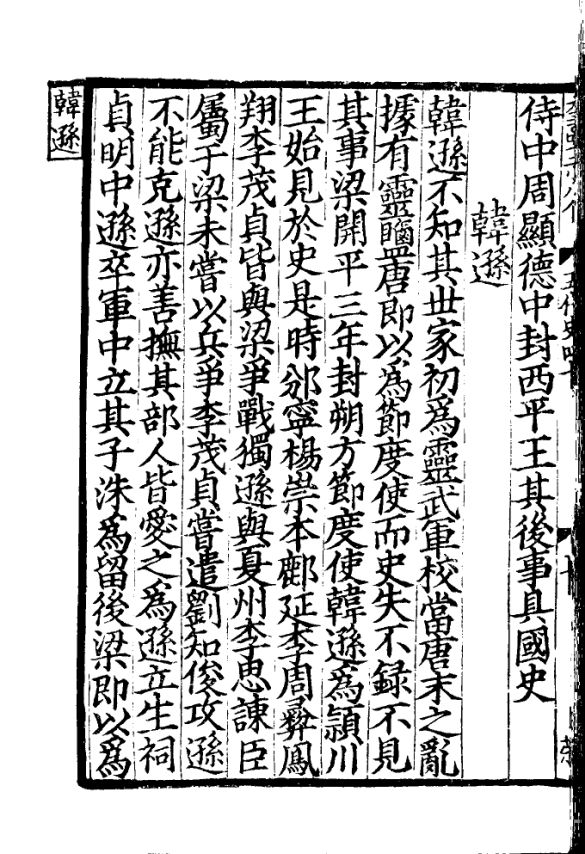 侍中周顯德中封西平王其後事具國史
韓遜
韓遜不知其世家初爲靈武軍校當唐末之亂
據有靈鹽唐即以爲節度使而史失不録不見
其事梁開平三年封朔方節度使韓遜爲潁川
王始見於史是時邠寧楊崇本鄜延李周彝鳳
翔李茂貞皆與梁爭戰獨遜與夏州李思諫臣
屬于梁未嘗以兵爭李茂貞嘗遣劉知俊攻遜
不能克遜亦善撫其部人皆愛之爲遜立生祠
貞明中遜卒軍中立其子洙爲留後梁即以爲
韓遜